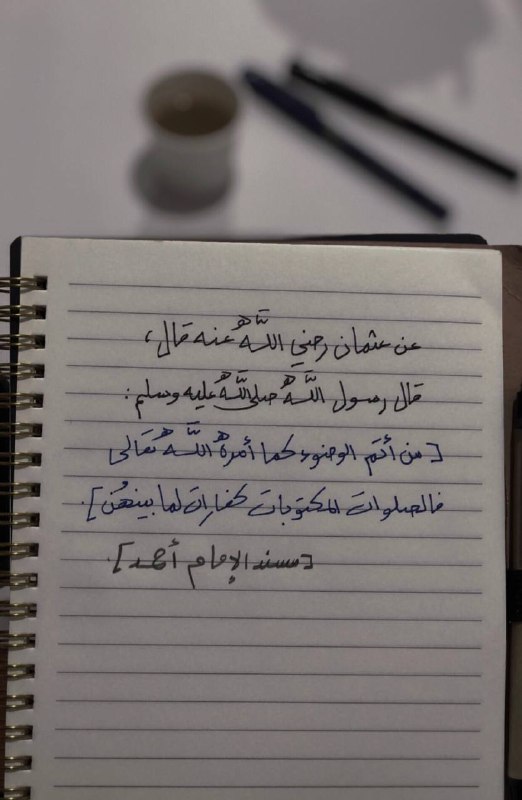 عن عثمان رضي اللَّه عنه قال،
قال رسول اللَّه صلى اللَّه عليه وسلم:
[من أتم الوضوء كما أمره اللَّه تعالى
فالصلوات المكتوبات كفارات لما بينهُن].
[مسند الإمام أحمد].